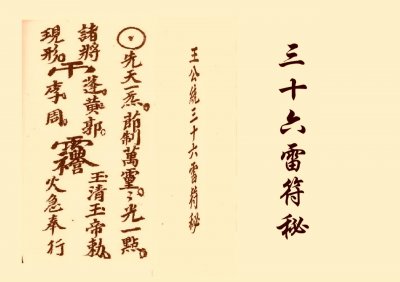 三十六雷符秘
王公統三十六雷符秘
先天一炁。節制萬靈。〻光一點。
諸將蓬黃郭。玉清玉帝勅。
現形。李周。火急奉行